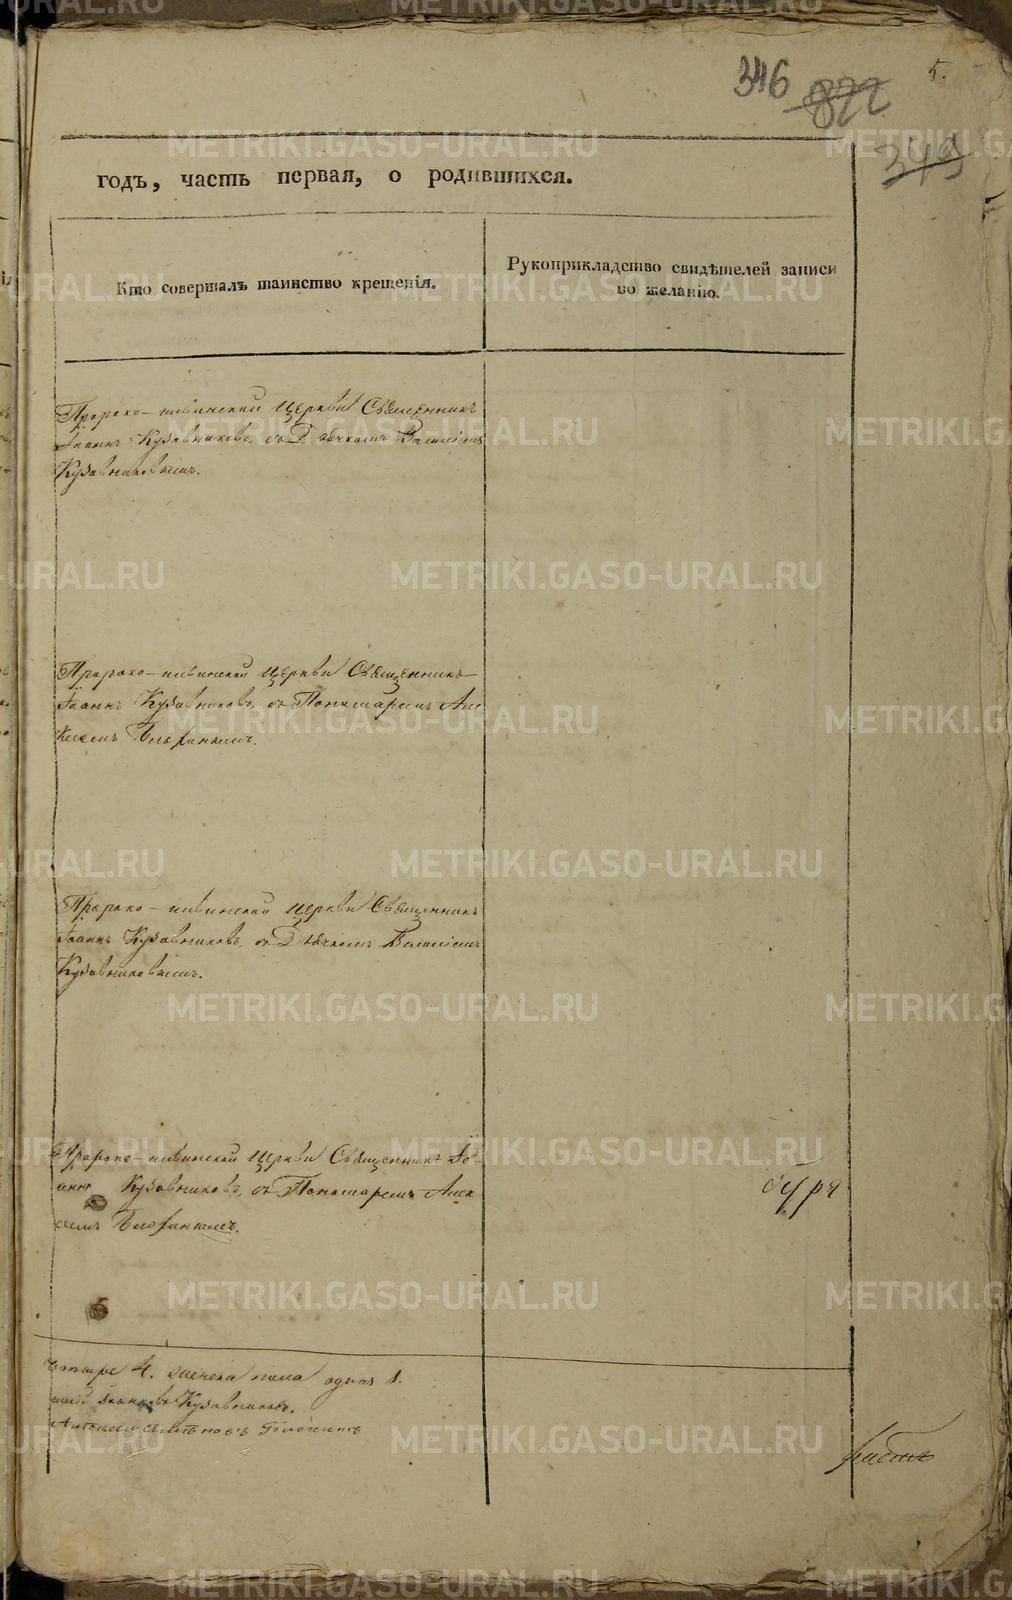 346
822
5.
349
годъ, часть первая, о родившихся.
Кто совершалъ таинство крещенія.
Рукоприкладство свидѣтелей записи
по желанію.
Пророко-ильинской церкви Священникъ
Іоаннъ Кузовниковъ, съ Дьячкомъ Василіемъ
Кузовниковымъ.
Пророко-ильинской церкви Священникъ
Іоаннъ Кузовниковъ, съ Пономаремъ Але
ксѣемъ
Пророко-ильинской церкви Священникъ
Іоаннъ Кузовниковъ, съ Дьячкомъ Василіемъ
Кузовниковымъ.
Пророко-ильинской церкви Священникъ Іо-
аннъ Кузовниковъ, съ Пономаремъ Алек
сѣемъ
четыре 4. женска пола одинъ 1.
Іоаннъ Кузовниковъ.
METRIKI.GASO-URAL.RU